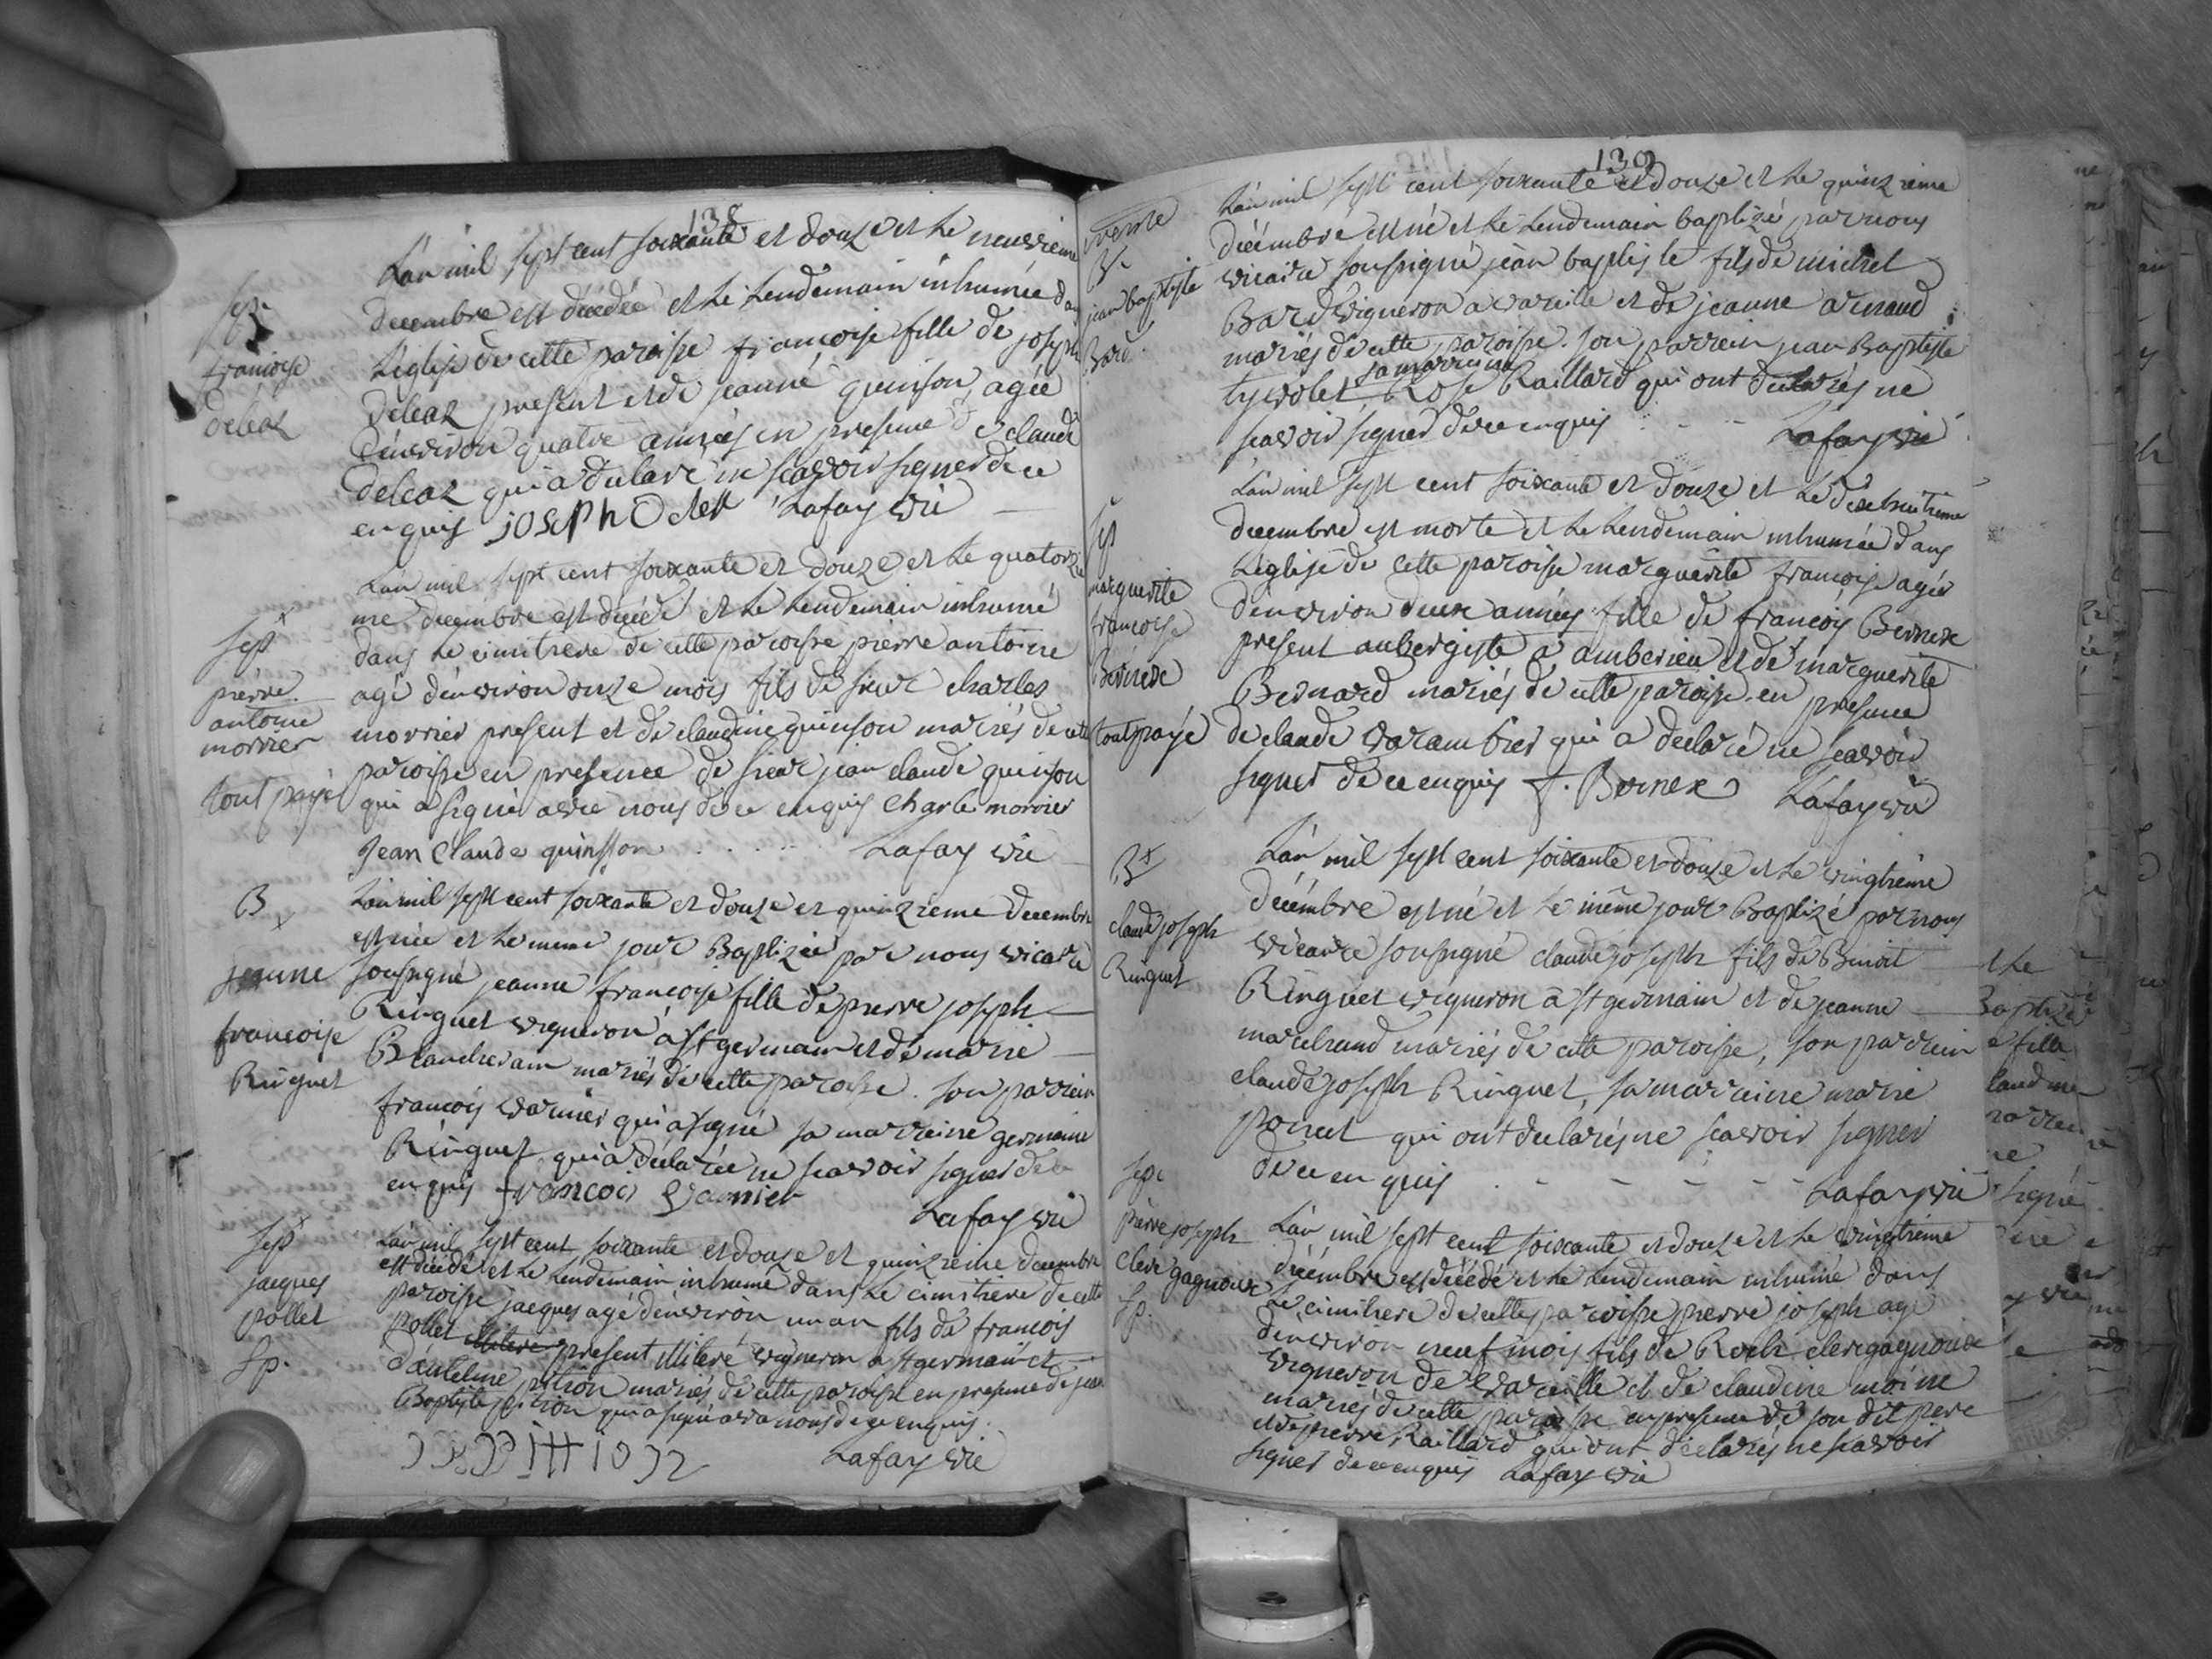 138
Sep.
francoise
deleaz
L'an mil sept cent soixante et douze et le neuvieme
decembre est décédée et le lendemain inhumée dans
l'église de cette paroisse francoise fille de joseph
deleaz present et de jeanne quinson, agée
d'environ quatre années en presence de claude
deleaz qui a déclaré ne scavoir signer de ce
enquis joseph Lafay vic
Sep
pierre
antoine
morrier
tout payé
L'an mil sept cent soixante et douze et le quatorzie
me decembre est décédé et le lendemain inhumé
dans le cimitiere de cette paroisse pierre antoine
agé d'environ onze mois fils de sieur charles
morrier present et de claudine quinson mariés de cette
paroisse en presence de sieur jean claude quinson
qui a signé avec nous de ce enquis Charle morrier
Jean Claude quinsson Lafay vic
B
jeanne
francoise
Ringuet
L'an mil sept cent soixante et douze et quinzieme decembre
est née et le meme jour Baptizée par nous vicaire
sousigné jeanne francoise fille de pierre joseph
Ringuet vigneron a st germain et de marie
Blancheram mariés de cette paroisse. son parrein
francois varnier qui a signé sa marreine germaine
Ringuet qui a déclarée ne scavoir signer de ce
enquis francoi Varnier
Lafay vic
Sep
jacques
pollet
Sp.
L'an mil sept cent soixante et douze et quinzieme decembre
est décédé et le lendemain inhumé dans le cimitiere de cette
paroisse jacques agé d'environ un an fils de francois
pollet present vigneron a st germain et
d'anteline pition mariés de cette paroisse en presence de jean
Baptiste pition qui a signé avec nous de ce enquis.
Lafay vic
139
B
jean baptiste
Bard
L'an mil sept cent soixante et douze et le quinzieme
décembre est né et le lendemain baptizé par nous
vicaire sousigné jean baptiste fils de michel
Bard vigneron a vareille et de jeanne arnaud
mariés de cette paroisse. son parrein jean Baptiste
tyvolet sa marreine Rose Raillard qui ont declarés ne
scavoir signer de ce enquis Lafay vic
Sep
marguerite
francoise
Bernexe
tout payé
L'an mil sept cent soixante et douze et le dixhuitieme
decembre est morte et le lendemain inhumée dans
l'eglise de cette paroisse marguerite francoise agée
d'environ deux années fille de francois Bernexe
present aubergiste a amberieu et de marguerite
Bernard mariés de cette paroisse en presence
de claude varambier qui a declaré ne scavoir
signer de ce enquis f. Bernex Lafay vic
B
claude joseph
Ringuet
L'an mil sept cent soixante et douze et le vingtieme
décembre est né et le même jour Baptizé par nous
vicaire sousigné claude joseph fils de Benoit
Ringuet vigneron a st germain et de jeanne
marchand mariés de cette paroisse, son parrein
claude joseph Ringuet, sa marreine marie
poncet qui ont declarés ne scavoir signer
de ce enquis
Lafay vic
Sep.
pierre joseph
clerc gagnoux
Sp.
L'an mil sept cent soixante et douze et le vingtieme
décembre est décédé et le lendemain inhumé dans
le cimitiere de cette paroisse pierre joseph agé
d'environ neuf mois fils de Roch clerc gagnoux
vigneron de vareille et de claudine moine
mariés de cette paroisse en presence de son dit pere
et de pierre Raillard qui ont déclarés ne scavoir
signer de ce enquis Lafay vic